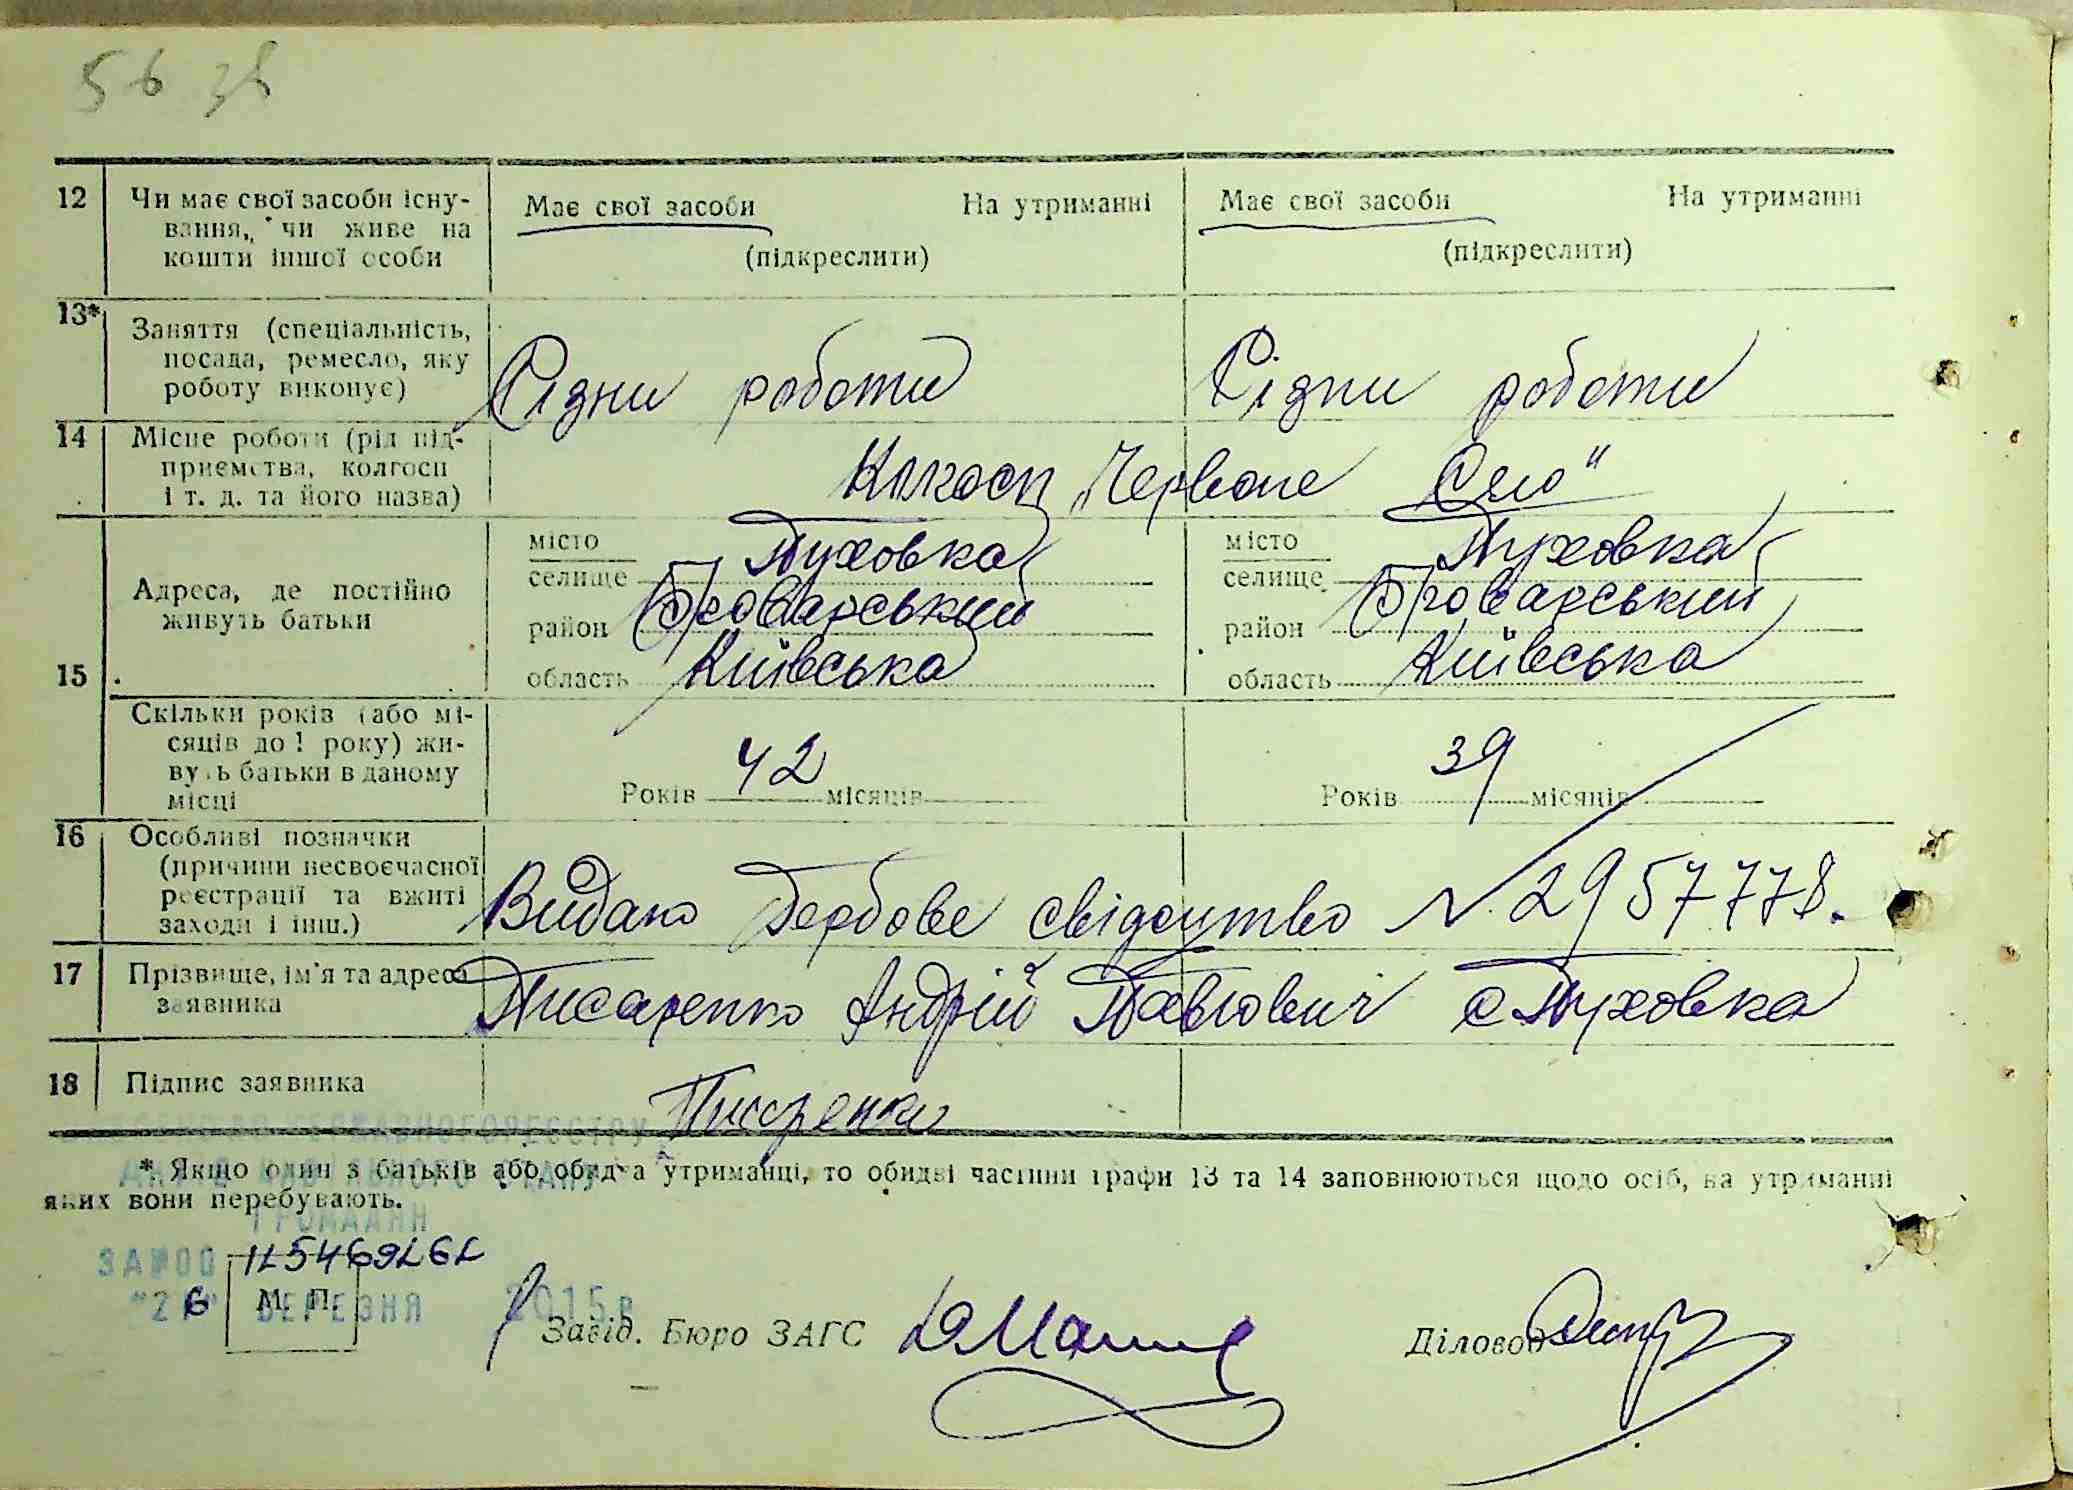 56 зв
12 Чи має свої засоби існу-
вання, чи живе на
кошти іншої особи
Має свої засоби На утриманні
(підкреслити)
Має свої засоби На утриманні
(підкреслити)
13* Заняття (спеціальність,
посада, ремесло, яку
роботу виконує)
Різни роботи
Різни роботи
14 Місце роботи (рід під-
приємства, колгосп
і т. д. та його назва)
Колгосп „Червоне Село"
15 Адреса, де постійно
живуть батьки
місто
селище Пуховка
район Броварський
область Київська
місто
селище Пуховка
район Броварський
область Київська
Скільки років (або мі-
сяців до 1 року) жи-
вуть батьки в даному
місці
Років 42 місяців
Років 39 місяців
16 Особливі позначки
(причини несвоєчасної
реєстрації та вжиті
заходи і інш.)
Видано Гербове свідоцтво № 2957778.
17 Прізвище, ім'я та адреса
заявника
Писаренко Андрій Павлович с Пуховка
18 Підпис заявника
Писаренко
ДЕРЖАВНОГО РЕЄСТРУ
* Якщо один з батьків або обидва утриманці, то обидві частини графи 13 та 14 заповнюються щодо осіб, на утриманні
яких вони перебувають.
ГРОМАДЯН
М. П.
"26" БЕРЕЗНЯ 2015р
Завід. Бюро ЗАГС
Діловод